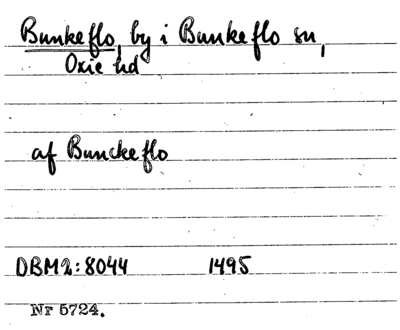 Bunkeflo, by i Bunkeflo sn,
Oxie hd
af Bunckeflo
DBM2:8044 1495
Nr 5724.